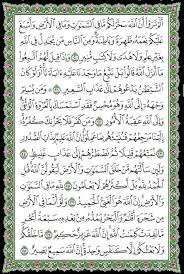 أَلَمْ تَرَوْا أَنَّ اللَّهَ سَخَّرَ لَكُم مَّا فِي السَّمَاوَاتِ وَمَا فِي الْأَرْضِ وَأَسْبَغَ
عَلَيْكُمْ نِعَمَهُ ظَاهِرَةً وَبَاطِنَةً وَمِنَ النَّاسِ مَن يُجَادِلُ فِي اللَّهِ
بِغَيْرِ عِلْمٍ وَلَا هُدًى وَلَا كِتَابٍ مُّنِيرٍ ۝ وَإِذَا قِيلَ لَهُمُ اتَّبِعُوا
مَا أَنزَلَ اللَّهُ قَالُوا بَلْ نَتَّبِعُ مَا وَجَدْنَا عَلَيْهِ آبَاءَنَا أَوَلَوْ كَانَ
الشَّيْطَانُ يَدْعُوهُمْ إِلَىٰ عَذَابِ السَّعِيرِ ۝ وَمَن يُسْلِمْ
وَجْهَهُ إِلَى اللَّهِ وَهُوَ مُحْسِنٌ فَقَدِ اسْتَمْسَكَ بِالْعُرْوَةِ الْوُثْقَىٰ
وَإِلَى اللَّهِ عَاقِبَةُ الْأُمُورِ ۝ وَمَن كَفَرَ فَلَا يَحْزُنكَ كُفْرُهُ
إِلَيْنَا مَرْجِعُهُمْ فَنُنَبِّئُهُم بِمَا عَمِلُوا إِنَّ اللَّهَ عَلِيمٌ بِذَاتِ الصُّدُورِ
۝ نُمَتِّعُهُمْ قَلِيلًا ثُمَّ نَضْطَرُّهُمْ إِلَىٰ عَذَابٍ غَلِيظٍ ۝
وَلَئِن سَأَلْتَهُم مَّنْ خَلَقَ السَّمَاوَاتِ وَالْأَرْضَ لَيَقُولُنَّ اللَّهُ قُلِ
الْحَمْدُ لِلَّهِ بَلْ أَكْثَرُهُمْ لَا يَعْلَمُونَ ۝ لِلَّهِ مَا فِي السَّمَاوَاتِ
وَالْأَرْضِ إِنَّ اللَّهَ هُوَ الْغَنِيُّ الْحَمِيدُ ۝ وَلَوْ أَنَّمَا فِي الْأَرْضِ
مِن شَجَرَةٍ أَقْلَامٌ وَالْبَحْرُ يَمُدُّهُ مِن بَعْدِهِ سَبْعَةُ أَبْحُرٍ
مَّا نَفِدَتْ كَلِمَاتُ اللَّهِ إِنَّ اللَّهَ عَزِيزٌ حَكِيمٌ ۝ مَّا خَلْقُكُمْ
وَلَا بَعْثُكُمْ إِلَّا كَنَفْسٍ وَاحِدَةٍ إِنَّ اللَّهَ سَمِيعٌ بَصِيرٌ ۝